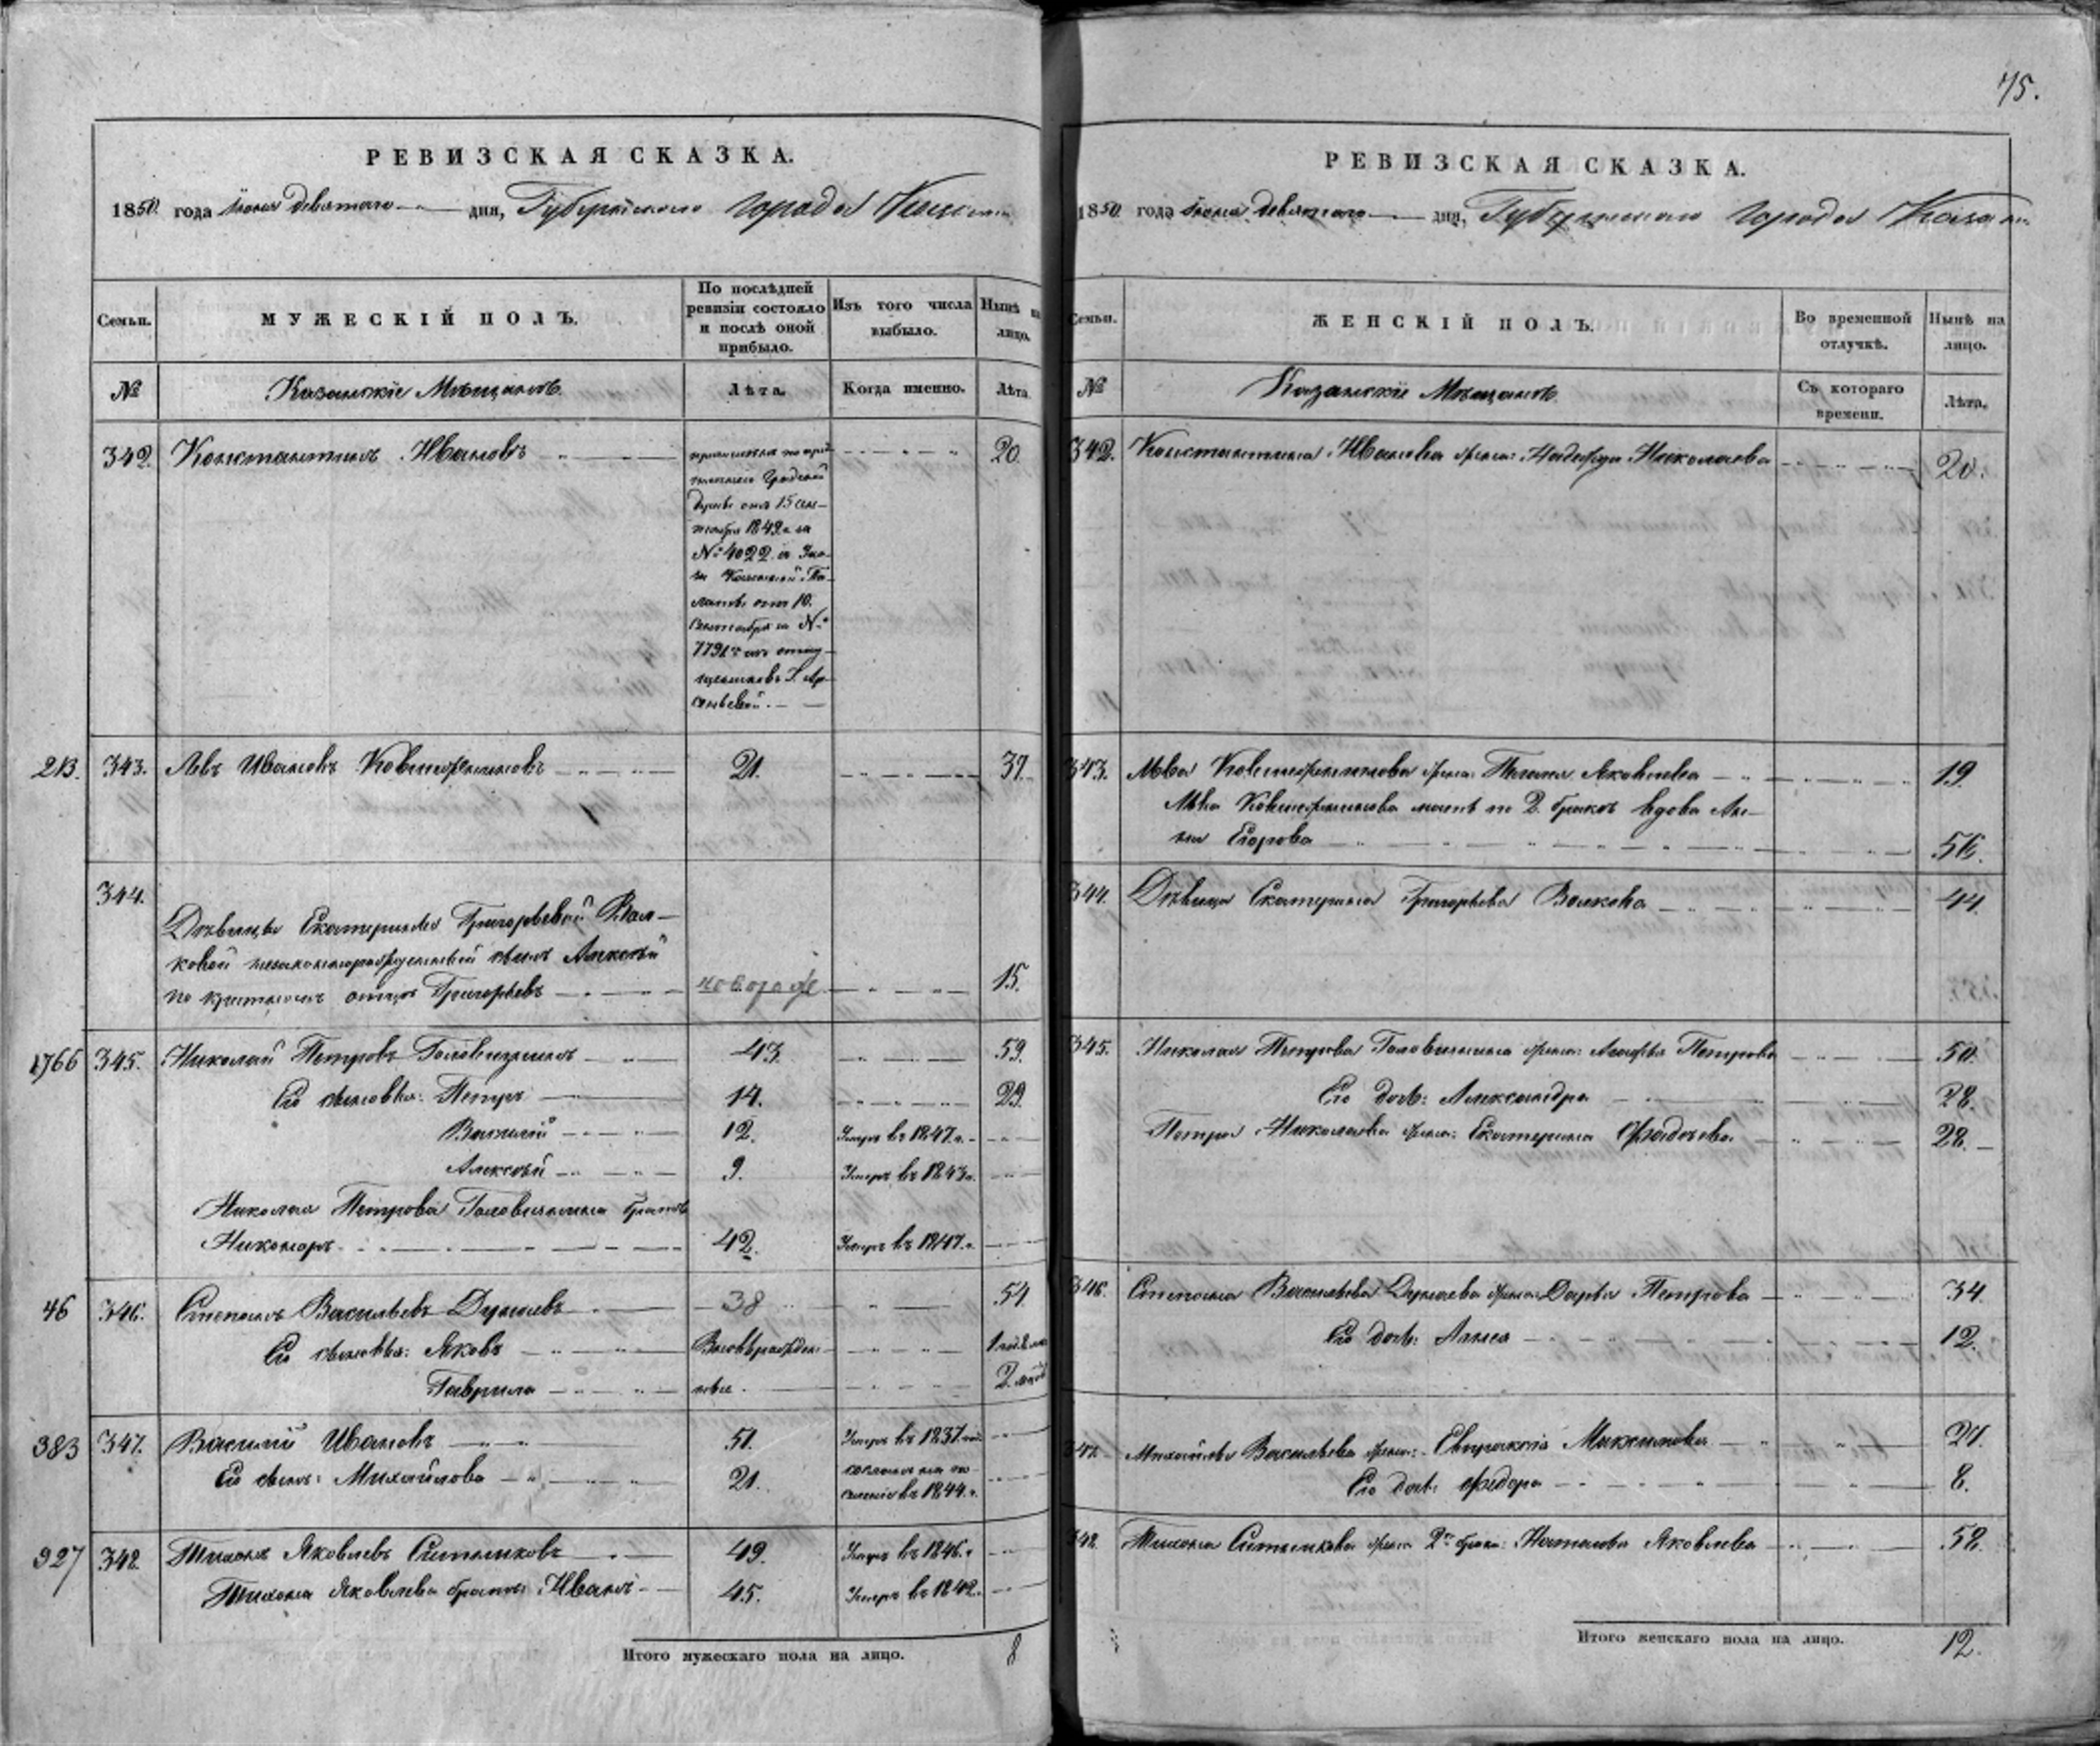 РЕВИЗСКАЯ СКАЗКА.
1850. года Іюня девятаго дня, Губернскаго города Казани
Семьи.
МУЖЕСКІЙ ПОЛЪ.
По послѣдней
ревизіи состояло
и послѣ оной
прибыло.
Изъ того числа
выбыло.
Нынѣ на
лицо.
№
Казанскіе Мѣщане
Лѣта.
Когда именно.
Лѣта.
342. Константинъ Ивановъ 20.
Думы отъ 15 сен-
тября 1849 г. за
№ 4022 и Ука-
за Казенной Па-
латы отъ 10.
Сентября за №
7791 изъ отпу-
щенниковъ Г. Ар-
сеньевой.
213. 343. Левъ Ивановъ 21. 37.
344.
Дѣвицы Екатерины Григорьевой Вол-
ковой незаконнорожденный сынъ Алексѣй
по крестномъ отцѣ Григорьевъ 15.
1766 345. Николай Петровъ 43. 59.
Его сыновья: Петръ 14. 29.
Василій 12. Умеръ въ 1847. г.
Алексѣй 9. Умеръ въ 1843 г.
Николая Петрова братъ
Никоноръ 42. Умеръ въ 1847. г.
46 346. Степанъ Васильевъ Дунаевъ 38 54.
Его сыновья: Яковъ
Гаврила 2. мѣс
383 347. Василій Ивановъ 51. Умеръ въ 1837. год.
Его сынъ: Михайлова 21. сосланъ на по-
селеніе въ 1844. г.
927 348. Тихонъ Яковлевъ Ситниковъ 49. Умеръ въ 1846. г.
Тихона Яковлева братъ Иванъ 45. Умеръ въ 1842.
Итого мужескаго пола на лицо. 8
75.
РЕВИЗСКАЯ СКАЗКА.
1850 года Іюня девятаго дня, Губернскаго города Казани
Семьи.
ЖЕНСКІЙ ПОЛЪ.
Во временной
отлучкѣ.
Нынѣ на
лицо.
№
Казанскіе Мѣщане
Съ котораго
времени.
Лѣта.
342. Константина Иванова жена: Надежда Николаева 20.
343. Льва жена: Яковлева 19.
Льва мать по 2. браку вдова Ан-
на Егорова 56.
344. Дѣвица Екатерина Григорьева Волкова 44.
345. Николая Петрова жена: Петрова 50.
Его дочь: Александра 28.
Петра Николаева жена: Екатерина 28.
346. Степана Васильева Дунаева жена: Дарья Петрова 34.
Его дочь: Анна 12.
347. Михайлы Васильева жена: Евпраксія Максимова
Его дочь: 8.
348. Тихона Ситникова жена 2го брака: Наталья Яковлева 58.
Итого женскаго пола на лицо. 12.